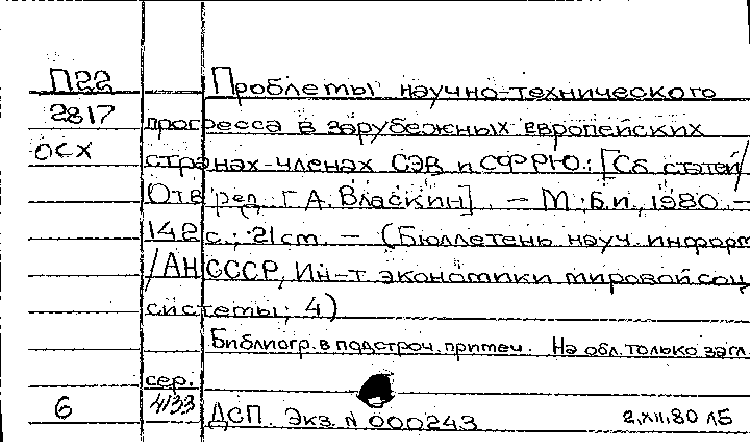 П22 Проблемы научно-технического
2817 прогресса в зарубежных европейских
ОСХ странах-членах СЭВ и СФРЮ: [Сб. статей/
Отв. ред. Г.А. Власкин]. – М.: Б.и., 1980. –
142 с.; 21 cm. – (Бюллетень науч. информ
/АН СССР, Ин-т экономики мировой соц
системы; 4)
Библиогр. в подстроч. примеч. На обл. только загл.
сер.
6 4133 ДСП. Экз. N 000243 2.XII.80